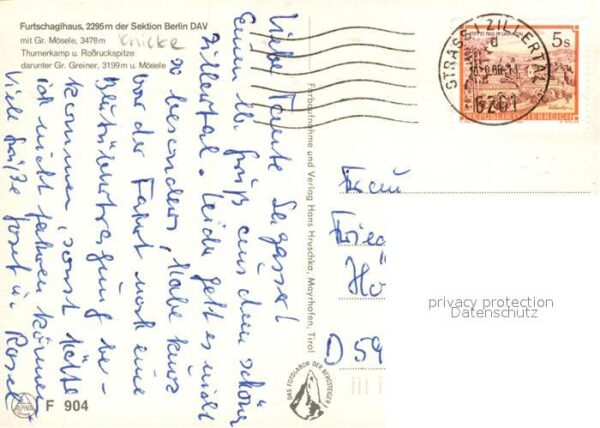 Furtschaglhaus, 2295m der Sektion Berlin DAV
mit Gr. Mösele, 3478m
Thurnerkamp u. Roßruckspitze
darunter Gr. Greiner, 3199m u. Mösele
Knicke
Liebe Tante
Einen lb. Gruß aus dem schönen
Zillertal. Leider geht es nicht
so besonders, habe kurz
vor der Fahrt noch eine
Blutübertragung be-
kommen, sonst hätte
ich nicht fahren können
Viele Grüße Josef u. Rosel
Farbaufnahme und Verlag Hans Hruschka, Mayrhofen, Tirol
STRASS I. ZILLERTAL
6261
5s
REPUBLIK ÖSTERREICH
Frau
Fried
Hö
D 59
privacy protection
Datenschutz
DAS FOTOLABOR DER BERGSTEIGER
F 904